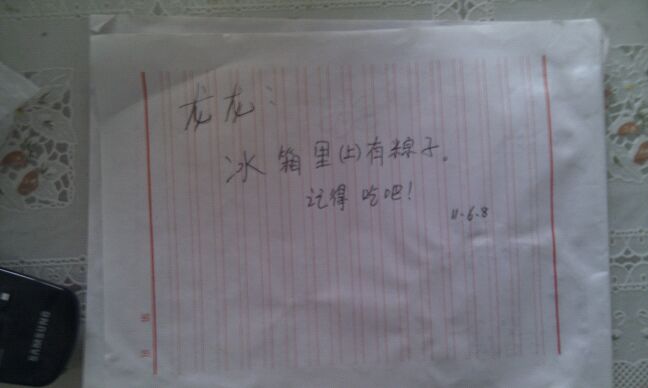 龙龙：
冰箱里(上)有粽子。
记得吃吧！
11.6.8
SAMSUNG